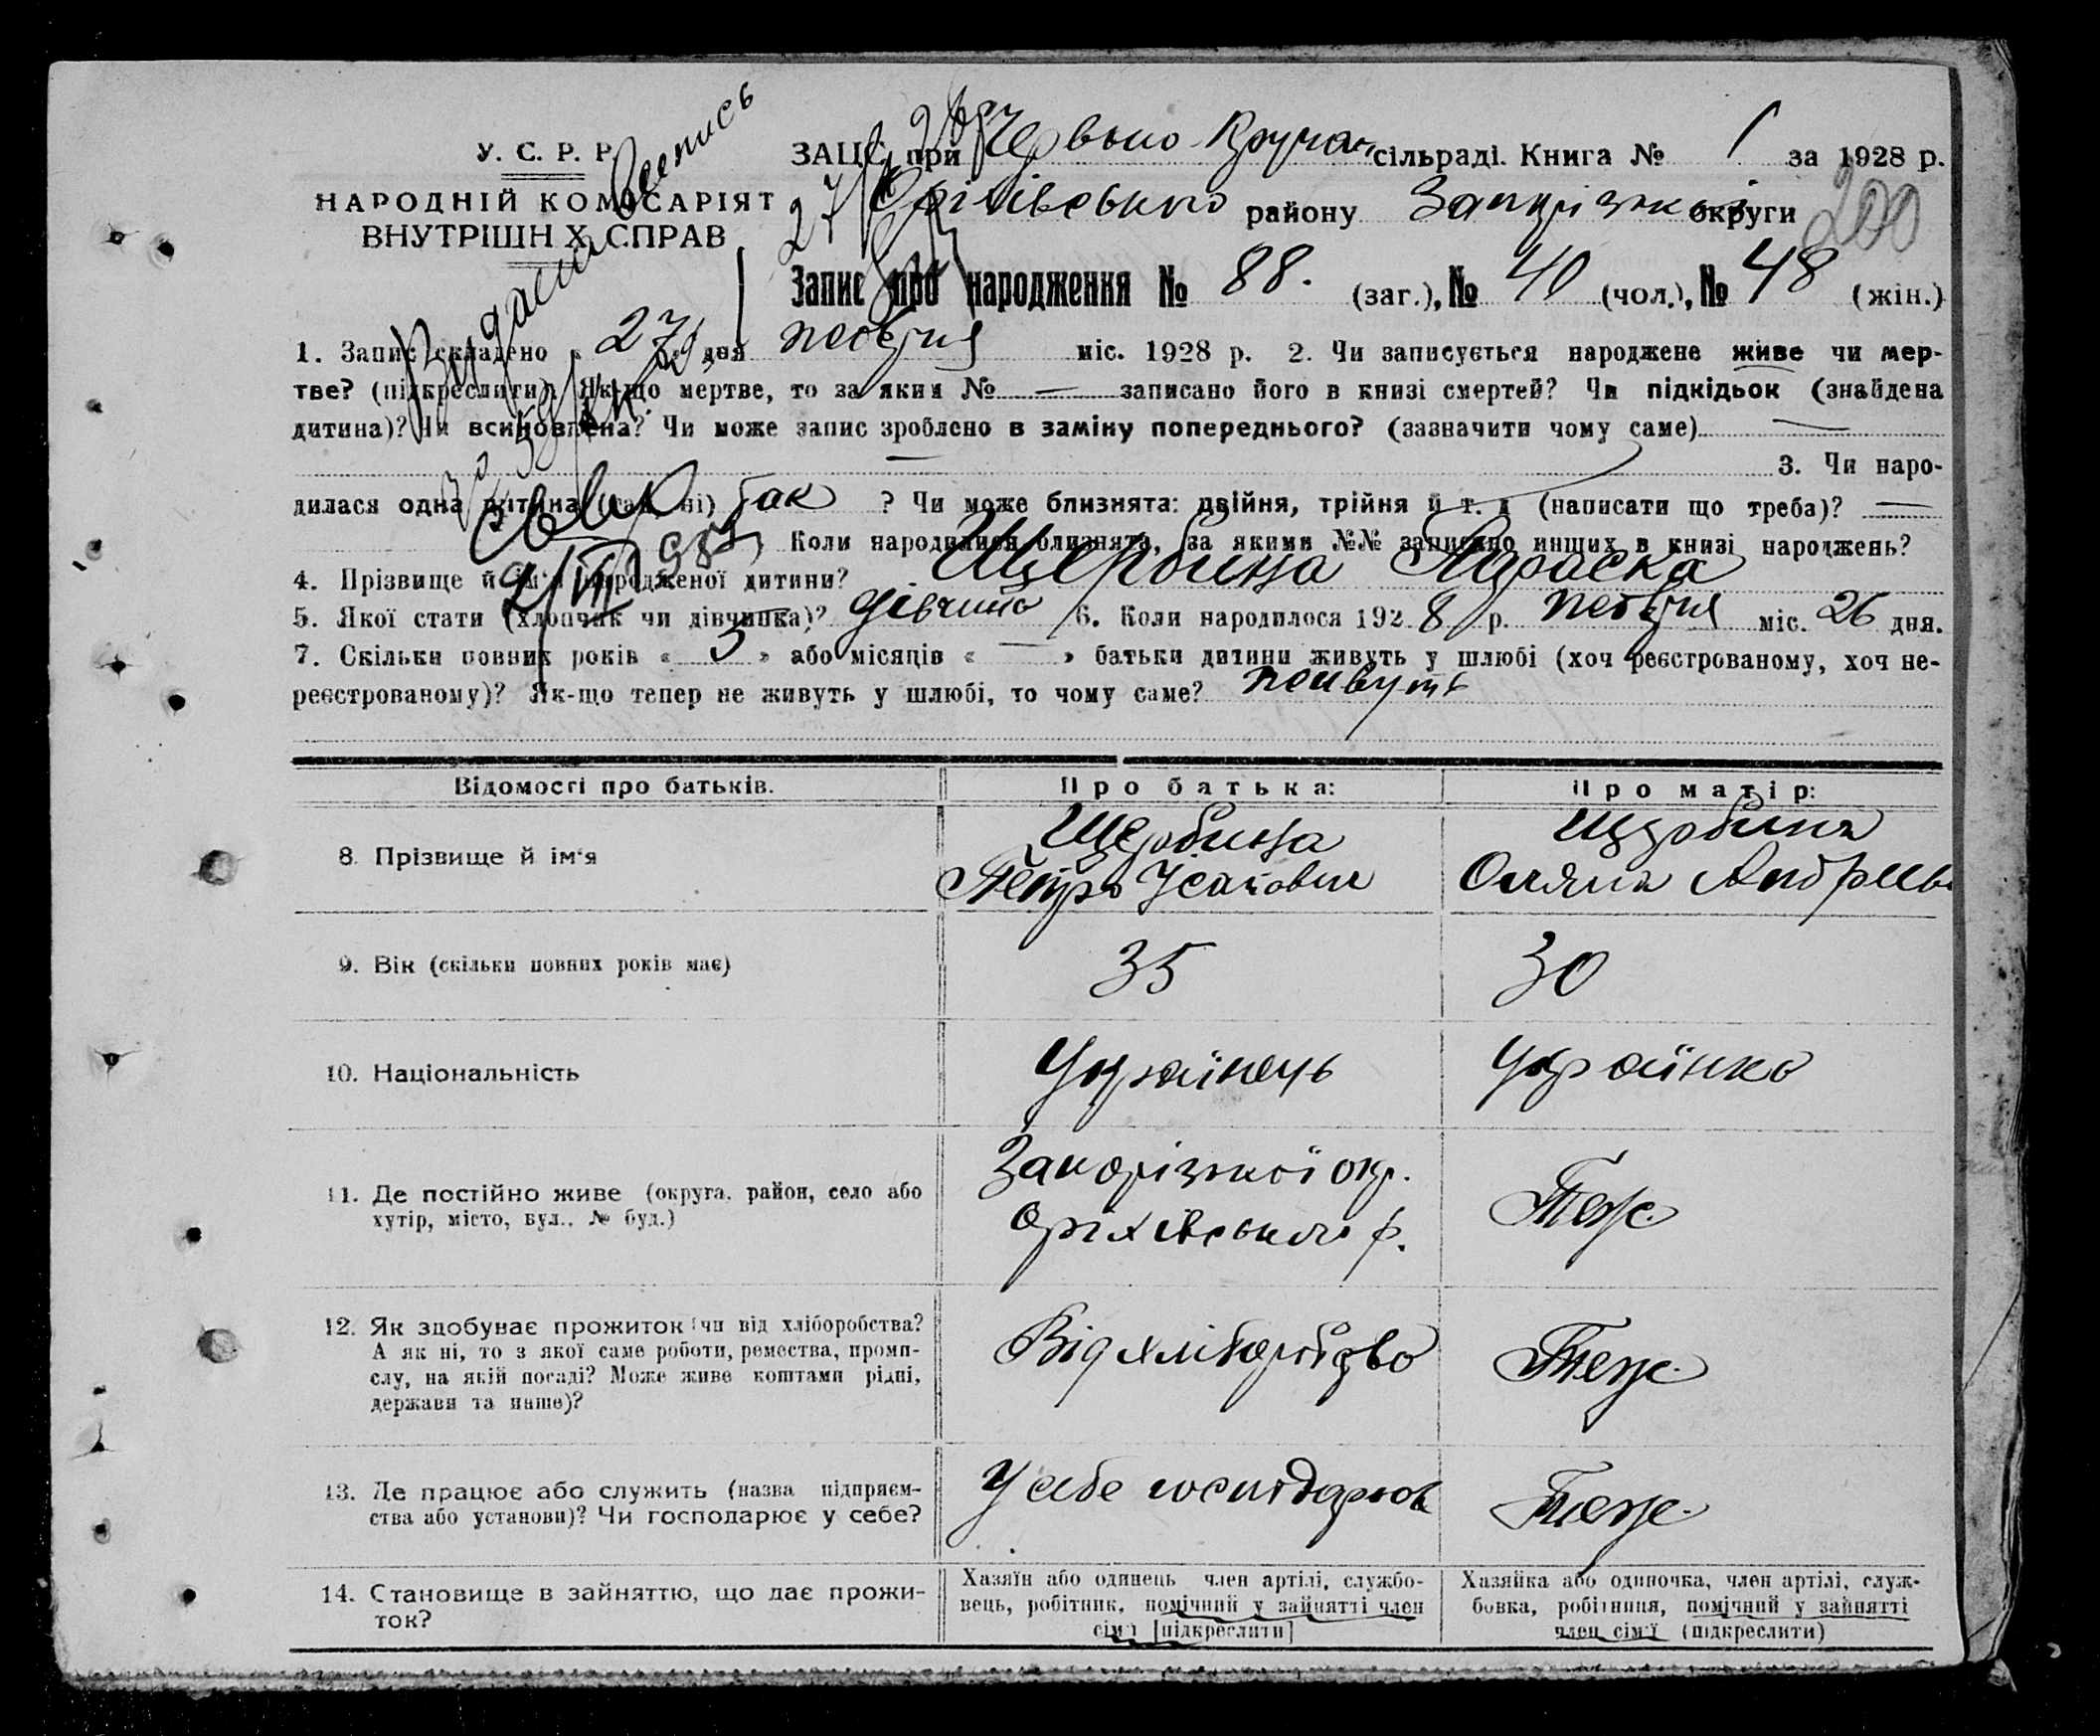 У. С. Р. Р.
НАРОДНІЙ КОМІСАРІЯТ
ВНУТРІШН Х СПРАВ
ЗАЦС при Червоно Кручан, сільраді. Книга № 1 за 1928 р.
Оріхівського району Запорізької округи
200
Запис про народження № 88. (заг.), № 40 (чол.), № 48 (жін.)
1. Запис складено « 27 » дня міс. 1928 р. 2. Чи записується народжене живе чи мер-
тве? (підкреслити). Як-що мертве, то за яким № — записано його в книзі смертей? Чи підкідьок (знайдена
дитина)? Чи всиновлена? Чи може запис зроблено в заміну попереднього? (зазначити чому саме) —
— 3. Чи наро-
дилася одна дитина (так, ні) так ? Чи може близнята: двійня, трійня й т. д (написати що треба)? —
Коли народилися близнята, за якими №№ записано инших в книзі народжень?
4. Прізвище й ім'я народженої дитини? Щербина Параска
5. Якої стати (хлопчик чи дівчинка)? дівчина 6. Коли народилося 192 8 р. міс. 26 дня.
7. Скільки повних років « 3 » або місяців « — » батьки дитини живуть у шлюбі (хоч реєстрованому, хоч не-
реєстрованому)? Як-що тепер не живуть у шлюбі, то чому саме?
Відомості про батьків. Про батька: Про матір:
8. Прізвище й ім'я Щербина Щербина
Петро Ісакович Андріев
9. Вік (скільки повних років має) 35 30
10. Національність Українець Українка
11. Де постійно живе (округа, район, село або
хутір, місто, вул., № буд.)
Запорізької окр.
Оріхівського р.
Теж.
12. Як здобуває прожиток (чи від хліборобства?
А як ні, то з якої саме роботи, ремества, проми-
слу, на якій посаді? Може живе коштами рідні,
держави та инше)?
Від хліборобство
Теж.
13. Де працює або служить (назва підприєм-
ства або установи)? Чи господарює у себе?
У себе господарюв
Теж.
14. Становище в зайняттю, що дає прожи-
ток?
Хазяїн або одинець член артілі, службо-
вець, робітник, помічний у зайнятті член
сім'ї [підкреслити]
Хазяйка або одиночка, член артілі, служ-
бовка, робітниця, помічний у зайнятті
член сім'ї (підкреслити)